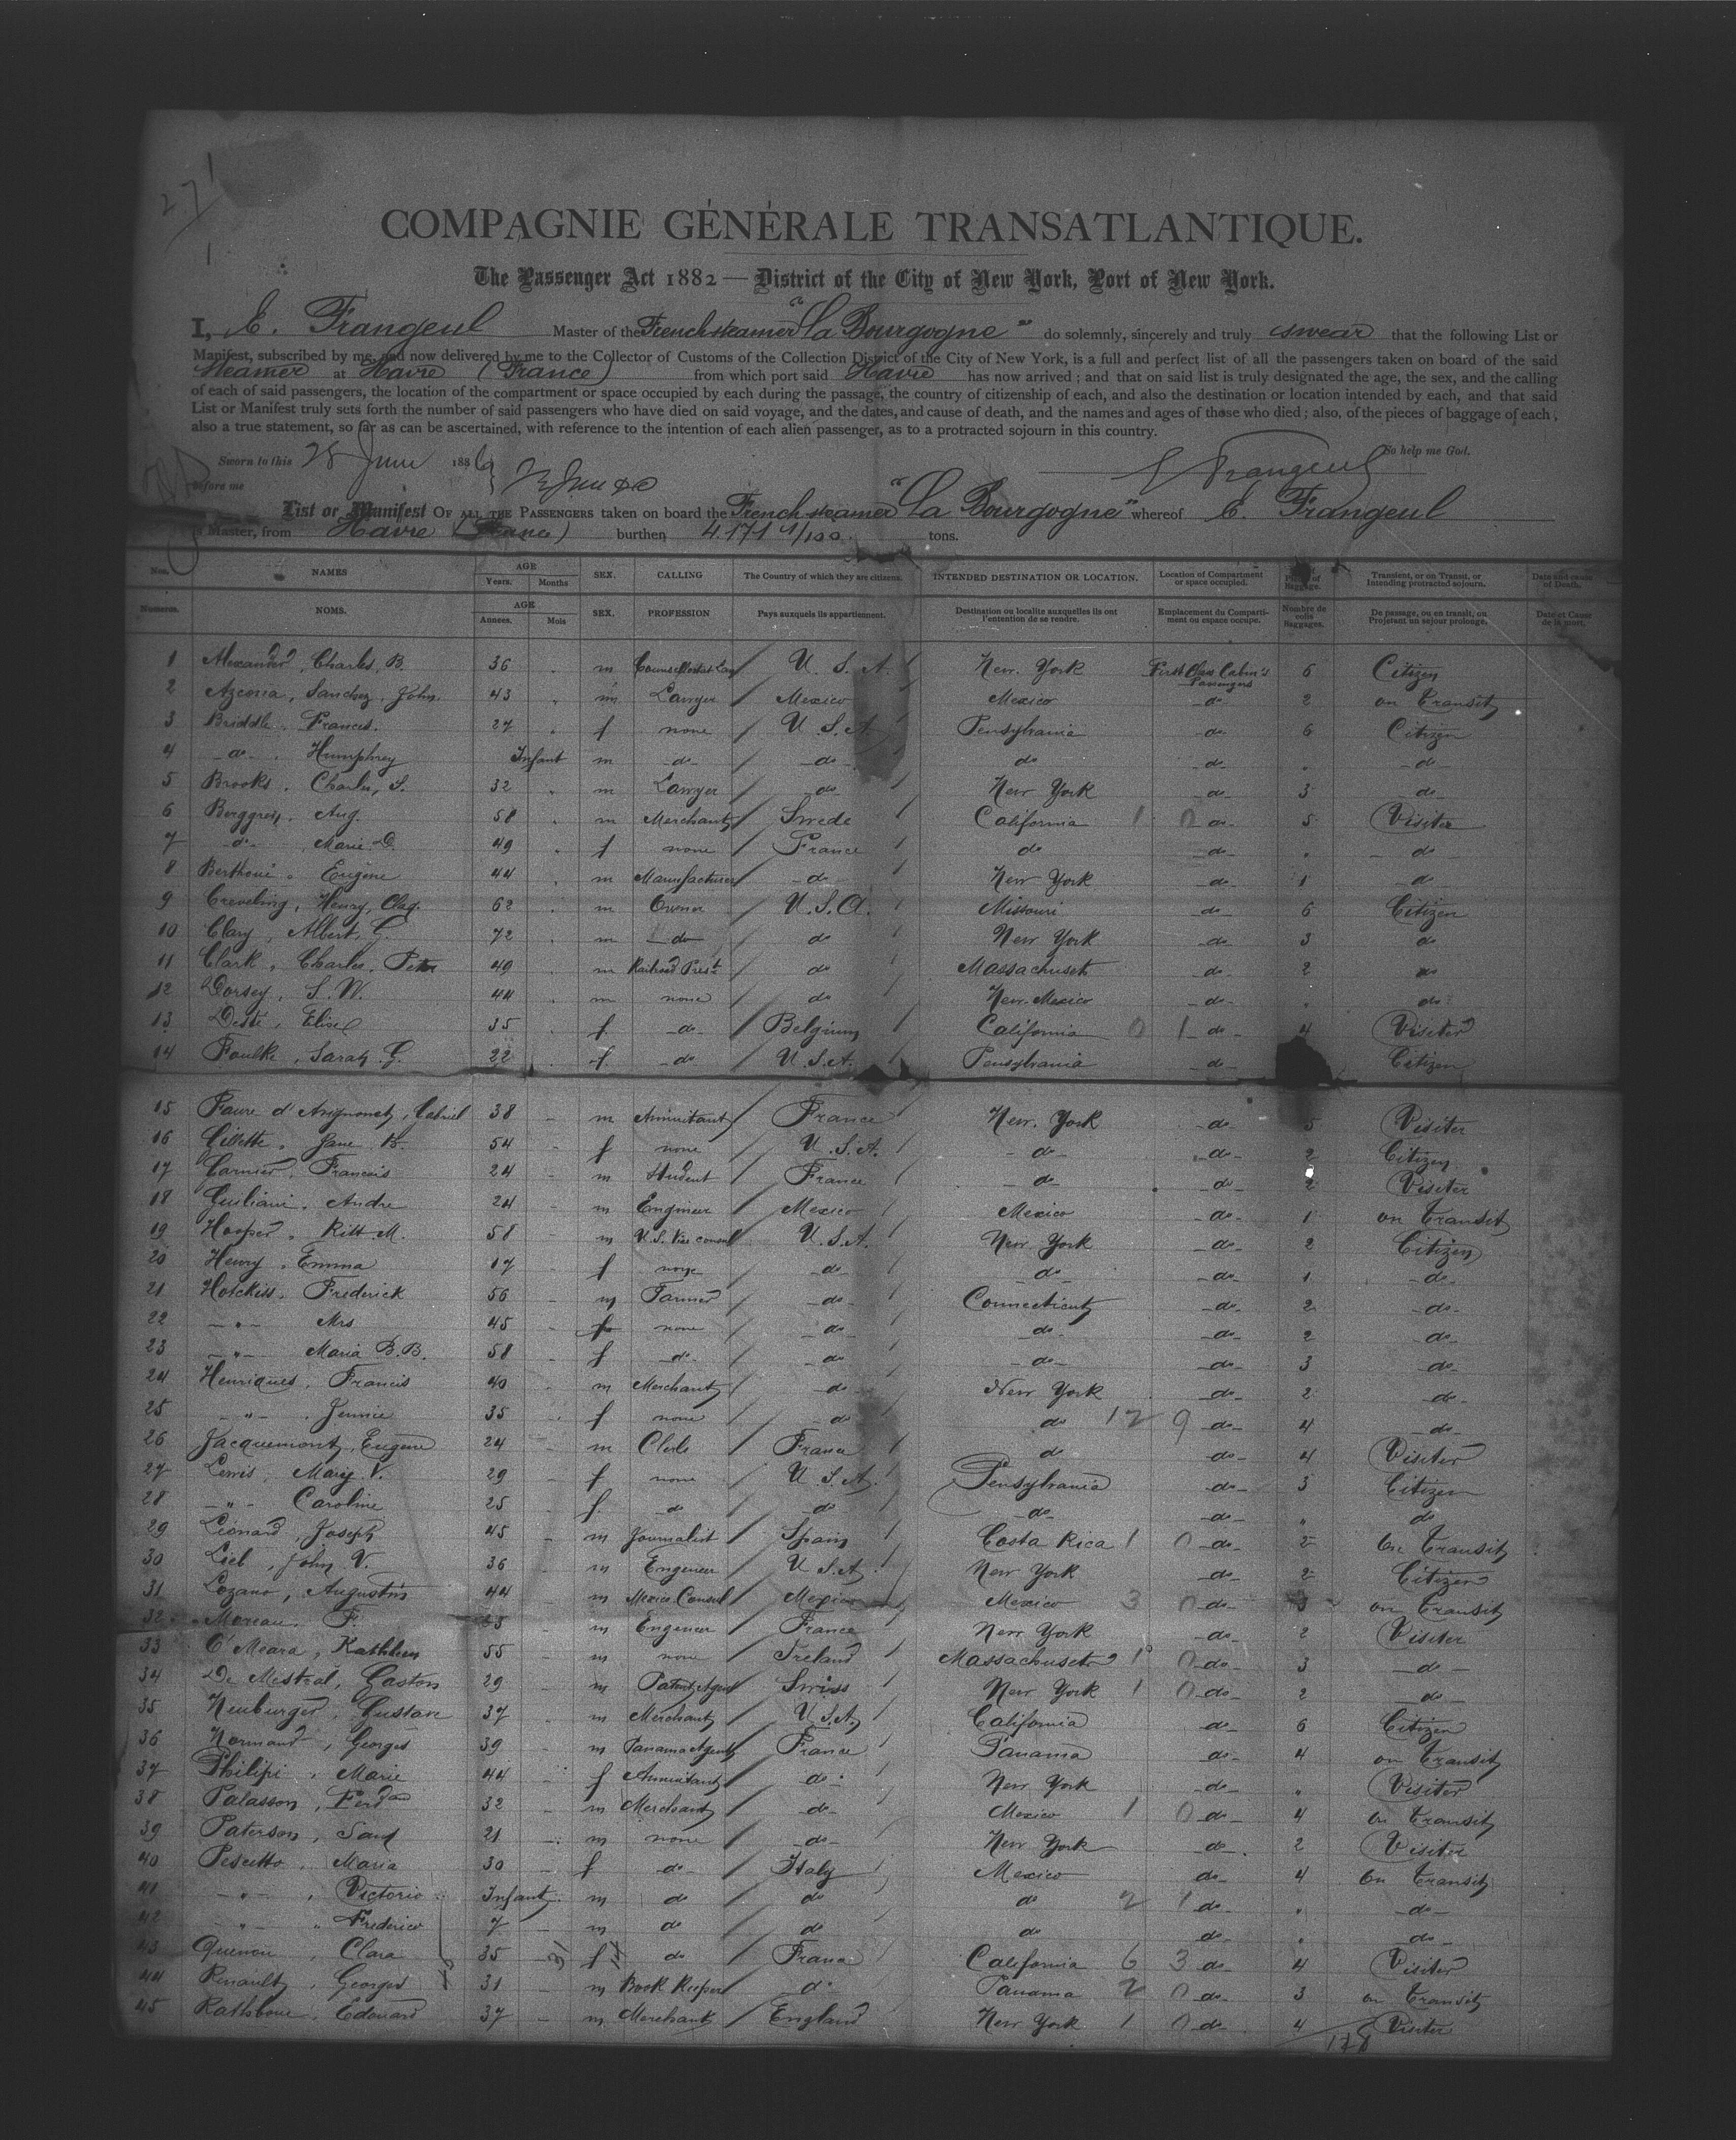 27
1
COMPAGNIE GÉNÉRALE TRANSATLANTIQUE.
The Passenger Act 1882 — District of the City of New York, Port of New York.
I, E. Frangeul Master of the French steamer "La Bourgogne" do solemnly, sincerely and truly swear that the following List or
Manifest, subscribed by me, and now delivered by me to the Collector of Customs of the Collection District of the City of New York, is a full and perfect list of all the passengers taken on board of the said
steamer at Havre (France) from which port said Havre has now arrived; and that on said list is truly designated the age, the sex, and the calling
of each of said passengers, the location of the compartment or space occupied by each during the passage, the country of citizenship of each, and also the destination or location intended by each, and that said
List or Manifest truly sets forth the number of said passengers who have died on said voyage, and the dates, and cause of death, and the names and ages of those who died; also, of the pieces of baggage of each,
also a true statement, so far as can be ascertained, with reference to the intention of each alien passenger, as to a protracted sojourn in this country.
So help me God.
Sworn to this 28 June 188
before me
E Frangeul
List or Manifest OF ALL THE PASSENGERS taken on board the French steamer "La Bourgogne" whereof E. Frangeul
is Master, from Havre (France) burthen 4.171 1/100 tons.
Nos. NAMES AGE Years. Months SEX. CALLING The Country of which they are citizens. INTENDED DESTINATION OR LOCATION. Location of Compartment or space occupied. of Baggage. Transient, or on Transit, or Intending protracted sojourn. Date and cause of Death.
Numeros. NOMS. AGE Années. Mois SEX. PROFESSION Pays auxquels ils appartiennent. Destination ou localite auxquelles ils ont l'entention de se rendre. Emplacement du Comparti-ment ou espace occupe. Nombre de colis Baggages. De passage, ou en transit, ou Projetant un sejour prolonge. Date et Cause de la mort.
1 Alexander, Charles, B. 36 m U. S. A. New. York First Class Cabin's Passengers 6 Citizen
2 Azcona, Sanchez, John. 43 m Lawyer Mexico Mexico do 2 on transit
3 Briddle, Frances. 27 f none U. S. A. Pensylvania do 6 Citizen
4 do Humphrey Infant m do do do do do
5 Brooks, Charles, S. 32 m Lawyer do New York do 3 do
6 Berggren, Aug. 58 m Merchant Swede California 1 0 do 5 Visiter
7 do Marie D. 49 f none France do do do
8 Berthoui, Eugène 44 m Manufacturer do New York do 1 do
9 Creveling, Henry, Clag. 62 m Owner U. S. A. Missouri do 6 Citizen
10 Clary, Albert, G. 72 m do do New York do 3 do
11 Clark, Charles, Peter 49 m Railroad Prest do Massachuset do 2 do
12 Dorsey, S. W. 44 m none do New-Mexico do do
13 Desté, Elise 35 f do Belgium California 0 1 do 4 Visiter
14 Foulke, Sarah. G. 22 f do U. S. A. Pensylvania do Citizen
15 Faure d'Avignonet, Gabriel 38 m Annuitant France New. York do 5 Visiter
16 Gillette, Jane B. 54 f none U. S. A. do do 2 Citizen
17 Garnier, Francois 24 m Student France do do 2 Visiter
18 Guiliani, Andre 24 m Engineer Mexico Mexico do 1 on transit
19 Hooper, Ritt M. 58 m U. S. Vice consul U. S. A. New York do 2 Citizen
20 Henry, Emma 17 f none do do do 1 do
21 Hotckiss, Frederick 56 m Farmer do Connecticut do 2 do
22 " Mrs 45 f none do do do 2 do
23 " Maria B. B. 58 f do do do do 3 do
24 Henriques, Francis 40 m Merchant do New York do 2 do
25 " Jennie 35 f none do do 12 9 do 4 do
26 Jacquemont, Eugene 24 m Clerk France do do 4 Visiter
27 Lewis, Mary V. 29 f none U. S. A. Pensylvania do 3 Citizen
28 " Caroline 25 f do do do do " do
29 Léonard, Joseph 45 m Journalist Spain Costa Rica 1 0 do 2 On transit
30 Lieb, John V. 36 m Engeneer U. S. A. New York do 2 Citizen
31 Lozano, Augustus 44 m Mexico Consul Mexico Mexico 3 0 do 3 on transit
32 Moreau, F. m Engeneer France New York do 2 Visiter
33 O'Meara, Kathleen 55 m none Ireland Massachuset 1 0 do 3 do
34 De Mestral, Gaston 29 m Patent Agent Swiss New York 1 0 do 2 do
35 Neuburger, Gustave 37 m Merchant U. S. A. California do 6 Citizen
36 Normand, Georges 39 m Panama Agent France Panama do 4 on transit
37 Philipi, Marie 44 f Annuitant do New York do " Visiter
38 Palasson, Ferd 32 m Merchant do Mexico 1 0 do 4 on transit
39 Paterson, Sand 21 m none do New York do 2 Visiter
40 Pescetto, Maria 30 f do Italy Mexico do 4 On transit
41 " Victorio Infant m do do do 2 1 do " do
42 " Frederico 7 m do do do do do
43 Quenou, Clara 35 f do France California 6 3 do 4 Visiter
44 Renault, Georges 31 m Book Keeper do Panama 2 0 do 3 on transit
45 Rathbone, Edouard 37 m Merchant England New York 1 0 do 4 Visiter
128